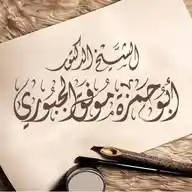 الشيخ الدكتور
أبو حمزة موفق الجبوري